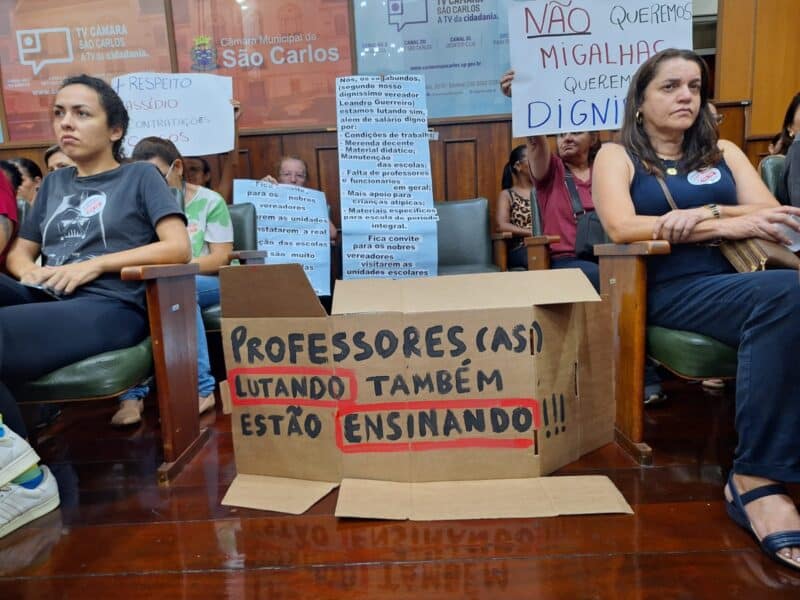 TV CÂMARA
SÃO CARLOS
A TV da cidadania.
Câmara Municipal de
São Carlos
A TV da cidadania.
+ RESPEITO
ASSÉDIO
NÃO QUEREMOS
MIGALHAS
QUEREMOS
Nós, os vagabundos,
(segundo nosso
digníssimo vereador
Leandro Guerreiro)
estamos lutando sim,
além de salário digno
por:
- Condições de trabalho
- Merenda decente
- Material didático;
Manutenção
das escolas;
- Falta de professores
e funcionários
em geral;
- Mais apoio para
crianças atípicas;
- Materiais específicos
para escola de período
integral.
Fica convite
para vereadores
visitarem as
unidades escolares
para os nobres
vereadores
unidades
escolas
são muito
PROFESSORES (AS)
LUTANDO TAMBÉM
ESTÃO ENSINANDO!!!